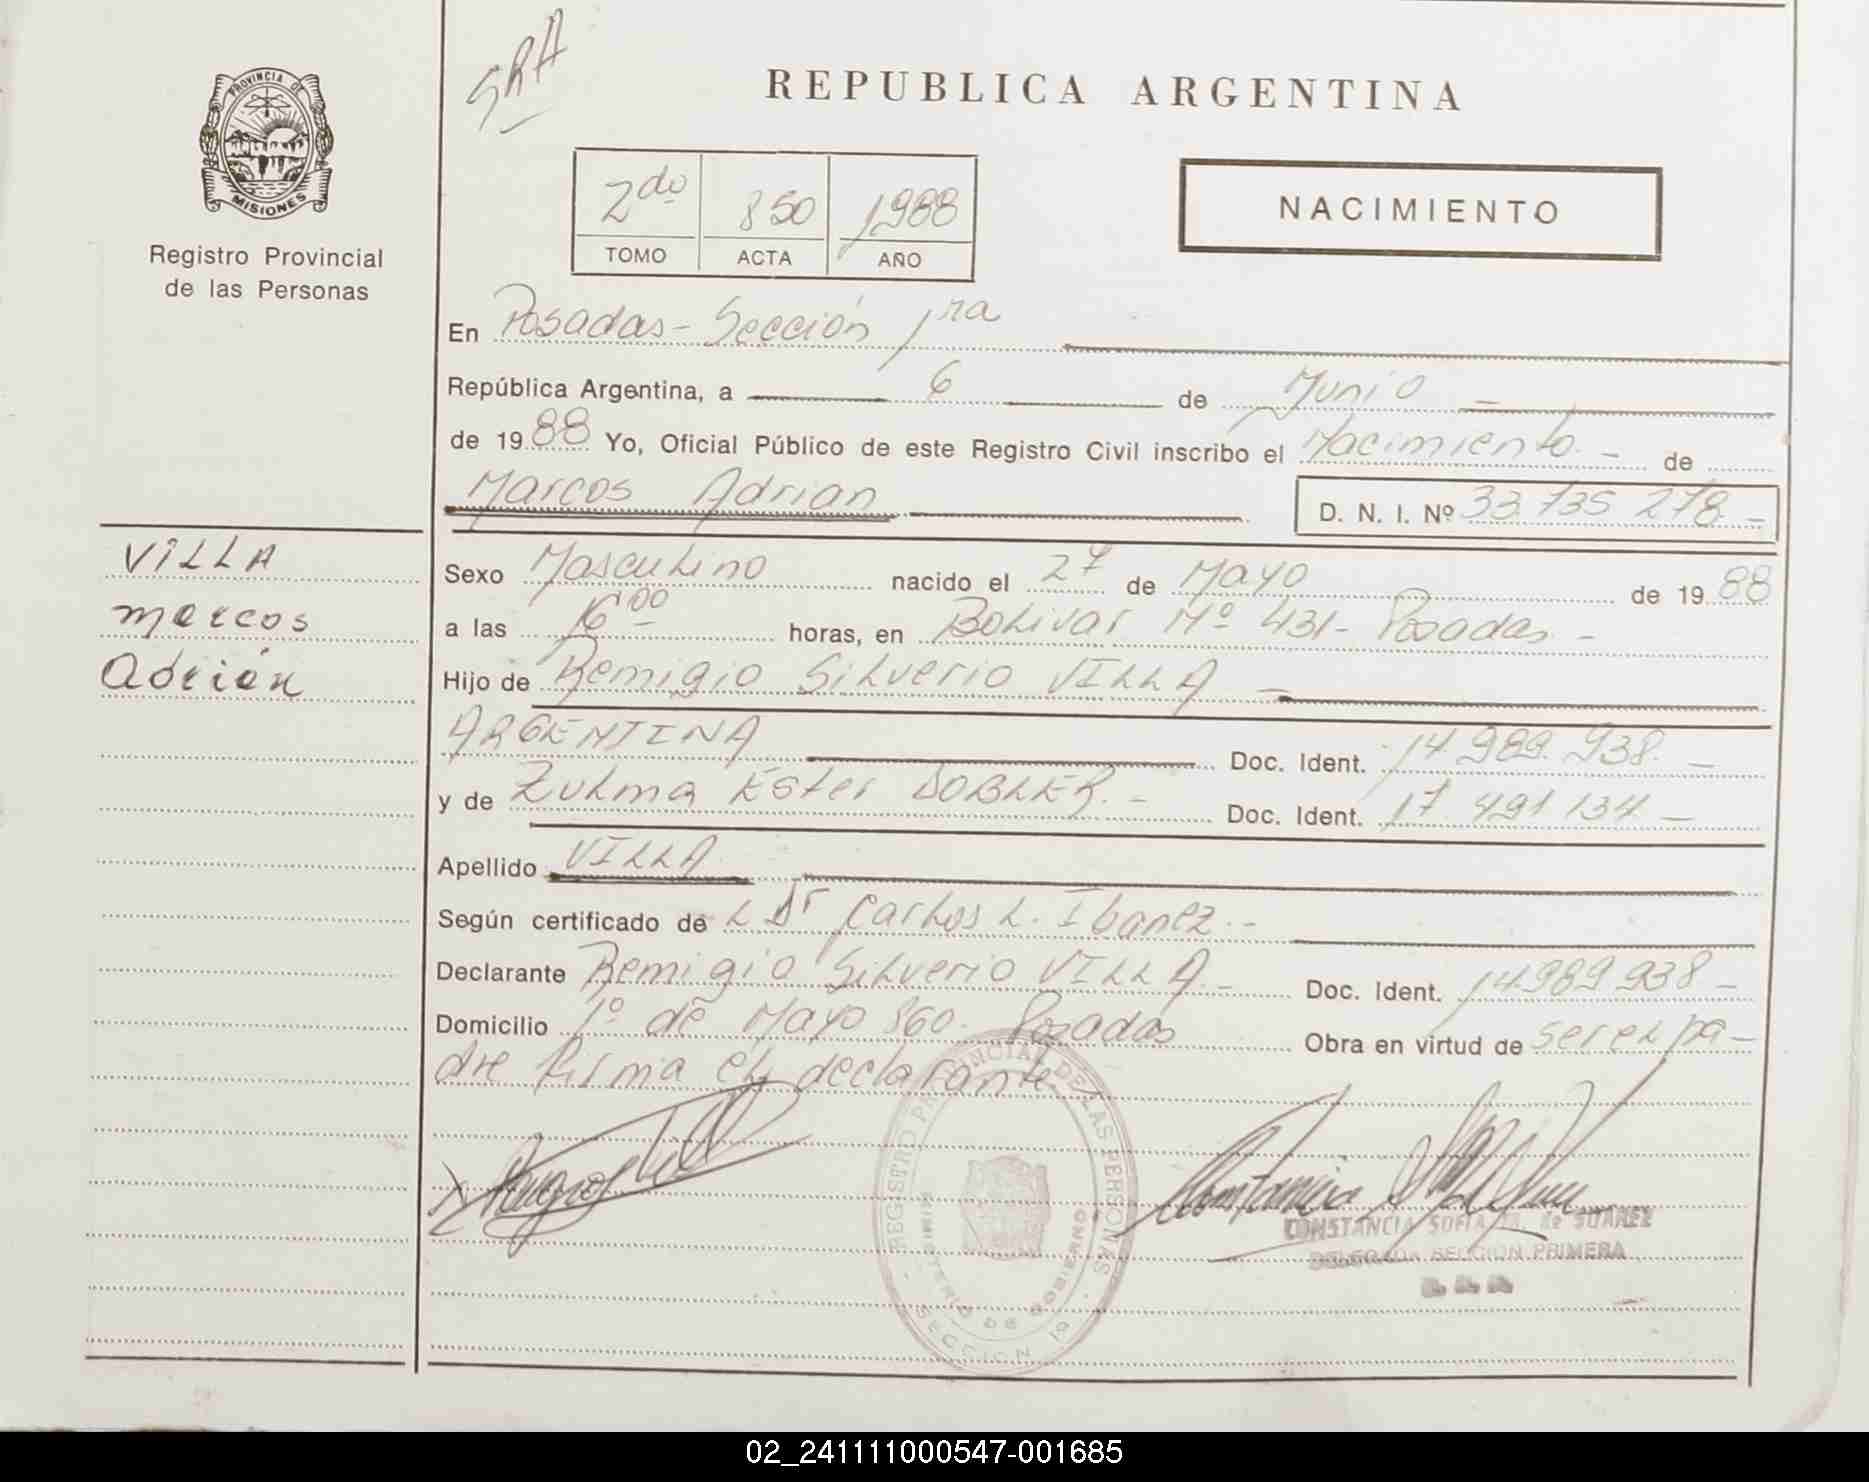 SRA
REPUBLICA ARGENTINA
PROVINCIA DE
MISIONES
Registro Provincial
de las Personas
2do 850 1988
TOMO ACTA AÑO
NACIMIENTO
En Posadas - Sección 1ra
República Argentina, a 6 de Junio
de 1988 Yo, Oficial Público de este Registro Civil inscribo el Nacimiento - de
Marcos Adrian D. N. I. Nº 33.735 278 -
VILLA
Marcos
Adrián
Sexo Masculino nacido el 27 de Mayo de 1988
a las 16 00 horas, en Bolivar Nº 431 - Posadas. -
Hijo de Remigio Silverio VILLA -
ARGENTINA Doc. Ident. 14.989.938. -
y de Zulma Ester DOBLER. - Doc. Ident. 17.491 134 -
Apellido VILLA
Según certificado de L Dr Carlos L. Ibanez. -
Declarante Remigio Silverio VILLA. - Doc. Ident. 14989 938 -
Domicilio 1º de Mayo 860. Posadas Obra en virtud de ser el pa-
dre firma el declarante
REGISTRO PROVINCIAL DE LAS PERSONAS
MINISTERIO DE GOBIERNO
SECCION 1ª
CONSTANCIA SOFIA de SUAREZ
DELEGADA SECCION PRIMERA
02_241111000547-001685